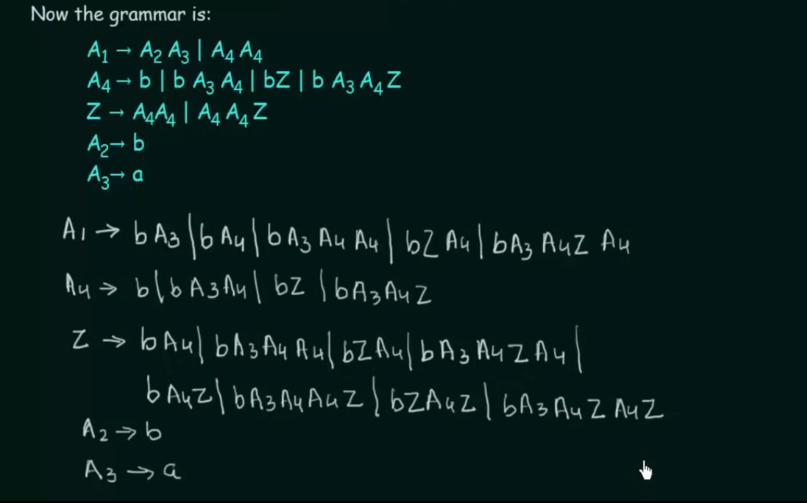 Now the grammar is:
A₁ → A₂ A₃ | A₄ A₄
A₄ → b | b A₃ A₄ | bZ | b A₃ A₄ Z
Z → A₄A₄ | A₄ A₄ Z
A₂→ b
A₃→ a
A₁ → bA₃ | bA₄ | bA₃ A₄ A₄ | bZ A₄ | bA₃ A₄Z A₄
A₄ → b | bA₃A₄ | bZ | bA₃A₄Z
Z → bA₄ | bA₃A₄A₄ | bZA₄ | bA₃ A₄ZA₄ |
bA₄Z | bA₃A₄A₄Z | bZA₄Z | bA₃A₄Z A₄Z
A₂ → b
A₃ → a